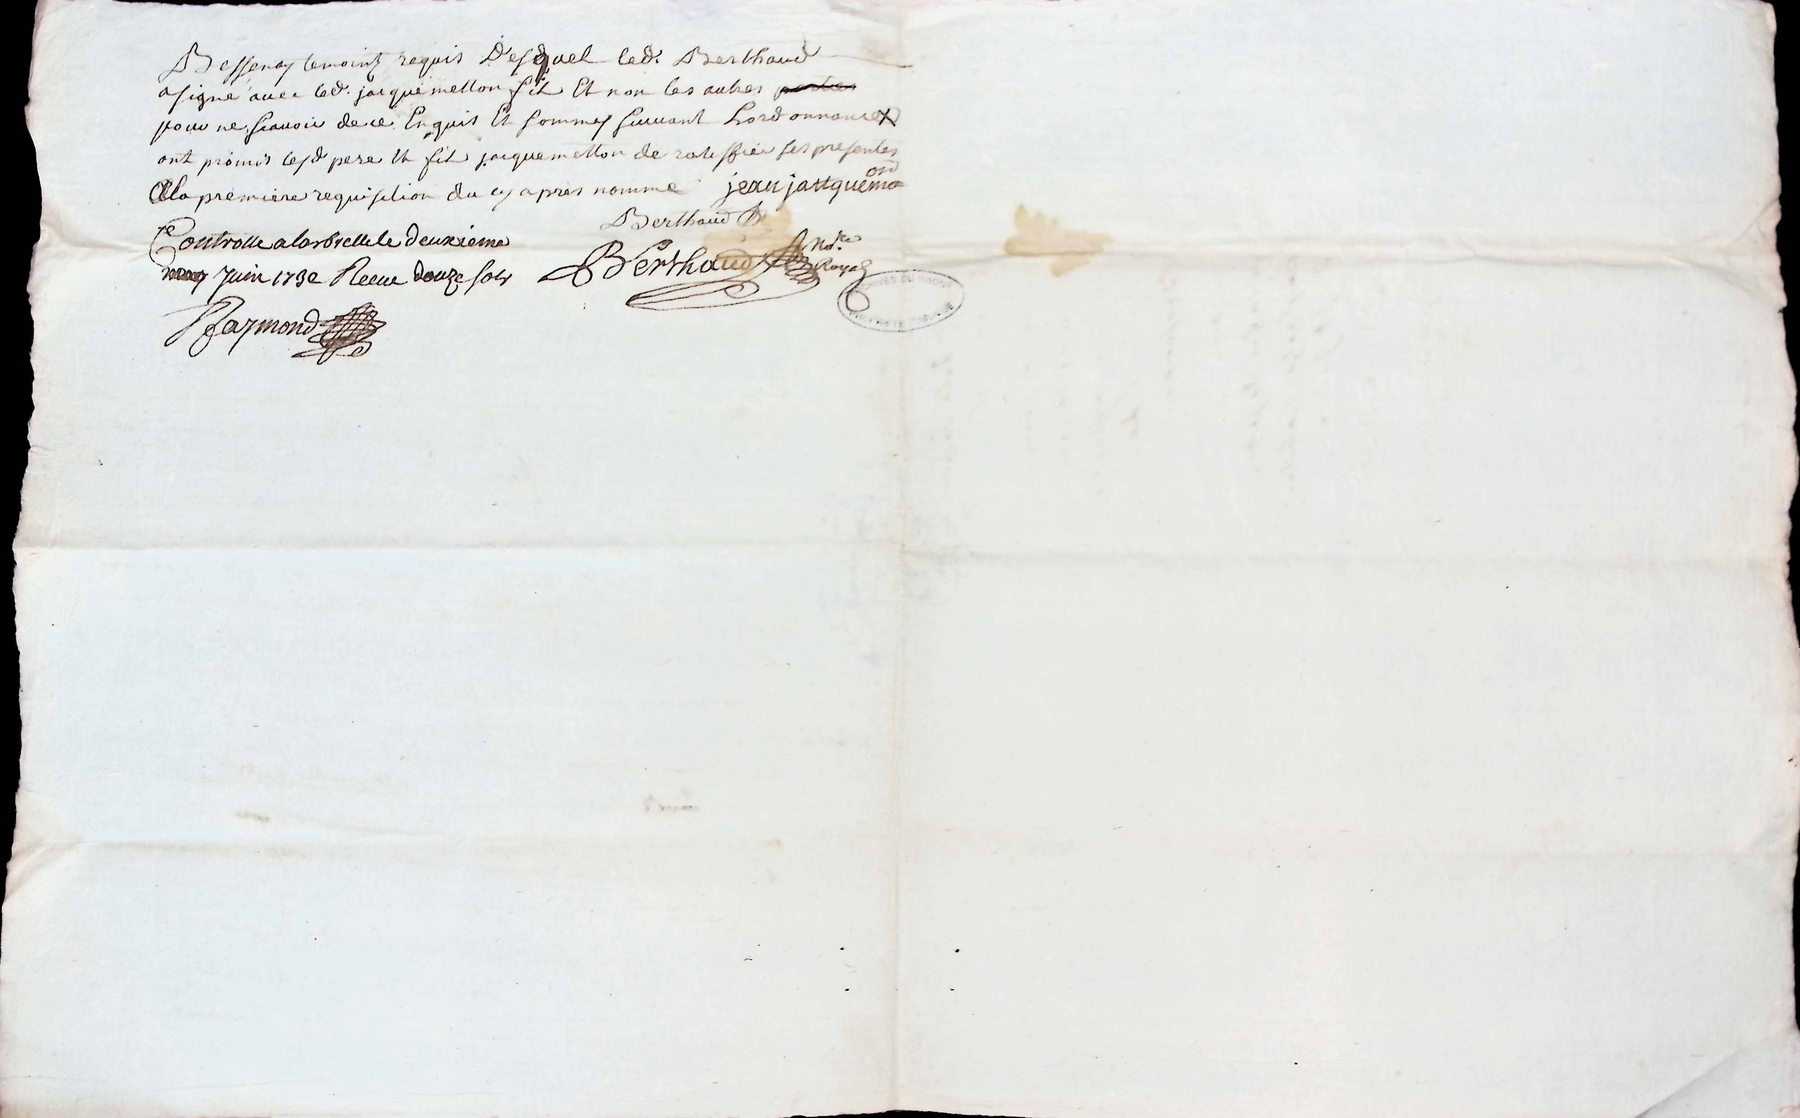 Bessenay temoins requis Desquel led. Berthaud
a signé avec led. jacquemetton fils Et non les autres parties
pour ne scavoir de ce Enquis Et sommes suivant Lordonnance
ont promis lesd pere Et fils jacquemetton de ratiffier ses presentes
A la premiere requisition du cy apres nommé jean jacquemeton
Berthaud
Controlle a larbrelle le deuxieme
may Juin 1732 Receu douze sols
Berthaud Nore Royal
Raymond
ARCHIVES DU RHONE